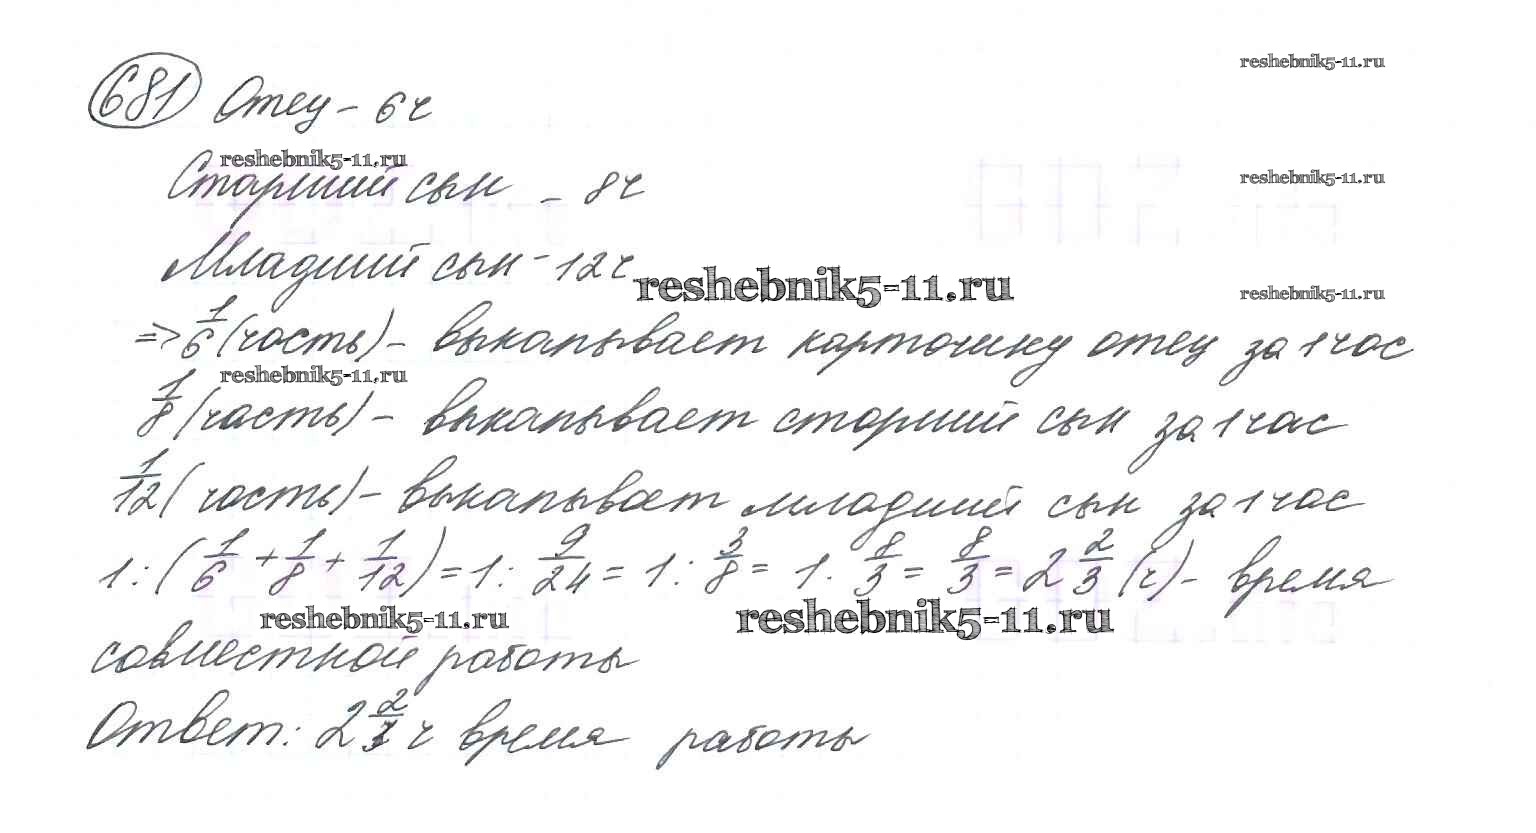 681 Отец – 6 ч
reshebnik5-11.ru
reshebnik5-11.ru
Старший сын – 8ч
reshebnik5-11.ru
Младший сын – 12ч
reshebnik5-11.ru
reshebnik5-11.ru
=> 1/6 (часть) – выкапывает карточику отец за 1 час
reshebnik5-11.ru
1/8 (часть) – выкапывает старший сын за 1 час
1/12 (часть) – выкапывает младший сын за 1 час
1 : (1/6 + 1/8 + 1/12) = 1 : 9/24 = 1 : 3/8 = 1 · 8/3 = 8/3 = 2 2/3 (ч) – время
reshebnik5-11.ru
reshebnik5-11.ru
совместной работы
Ответ: 2 2/3 ч время работы